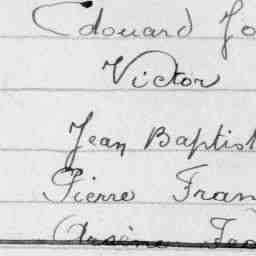 Edouard Jo
Victor
Jean Baptist
Pierre Fran
Arsène